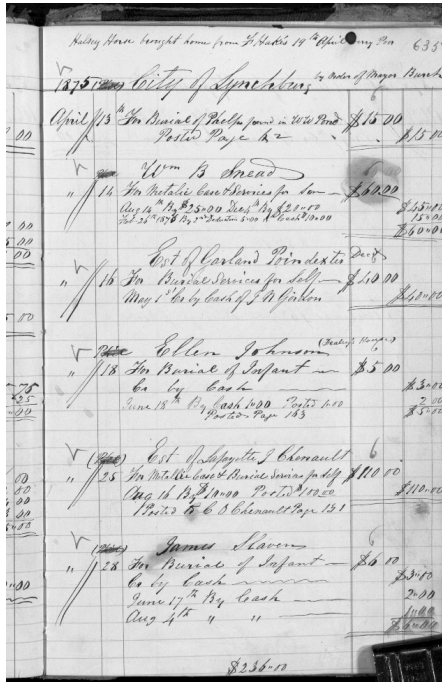 Halsey Horse brought home from F. Hake's 19th April
635
1875 City of Lynchburg by Order of Mayor Burch
April 13th For Burial of found in W W Pond $15.00
Posted Page 42 $15.00
Wm B Snead
" 14 For Metalic Case & Services for Son $60.00
Aug 14th By $25=00 Dec 4th By $20=00 $45=00
Feb 26th 1876 By Cash 15=00
$60=00
Est of Garland Poindexter Decd
" 16 For Burial Services for Self $40.00
May 1st Cr by Cash of J N Gordon $40=00
Ellen Johnson
" 18 For Burial of Infant $5.00
Cr by Cash $3=00
June 18th By Cash 1=00 Posted 1=00 2=00
Posted Page 163 $5=00
Est of Lafayette J Chenault
" 25 For Metallic Case & Burial Services for Self $110.00
Aug 16 By $10=00 Posted $100.00 $110=00
Posted to C O Chenault Page 151
James Slaven
" 28 For Burial of Infant $6.00
Cr by Cash $3=00
June 17th By Cash 2=00
Aug 4th " " 1=00
$6=00
$236=00